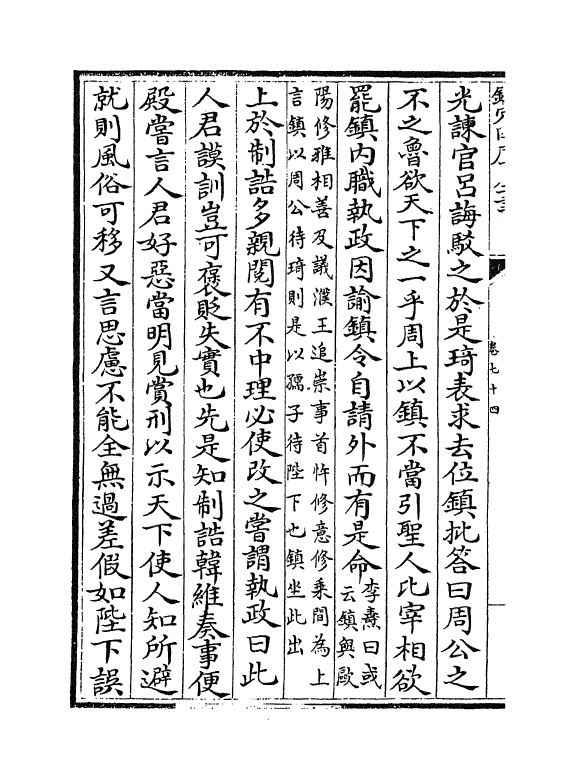 卷七十四
光諫官呂誨駁之於是琦表求去位鎮批答曰周公之
不之魯欲天下之一乎周上以鎮不當引聖人比宰相欲
罷鎮內職執政因諭鎮令自請外而有是命李燾曰或
云鎮與歐
陽修雅相善及議濮王追崇事首忤修意修乘間為上
言鎮以周公待琦則是以孺子待陛下也鎮坐此出
上於制誥多親閱有不中理必使改之嘗謂執政曰此
人君謨訓豈可褒貶失實也先是知制誥韓維奏事便
殿嘗言人君好惡當明見賞刑以示天下使人知所避
就則風俗可移又言思慮不能全無過差假如陛下誤